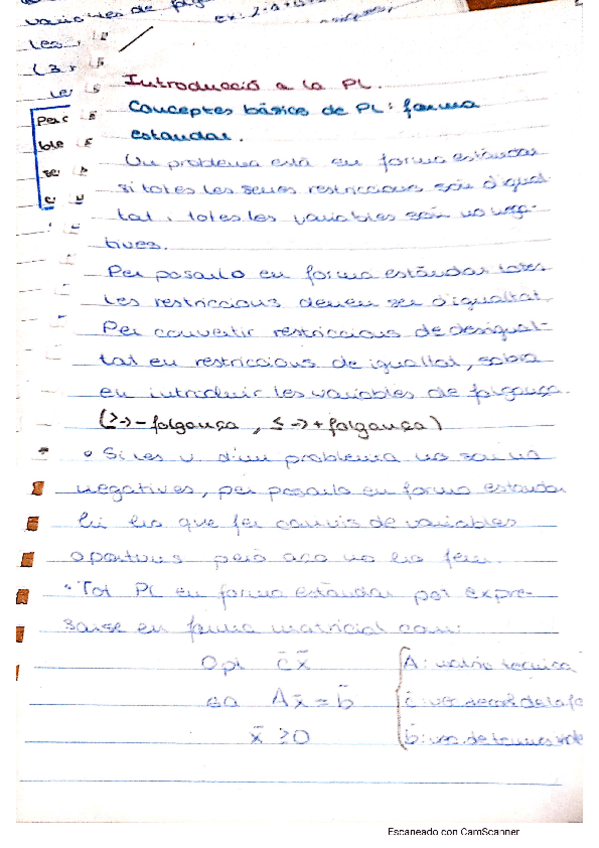 variables de
les
(3
Introducció a la PL.
Conceptes bàsics de PL: forma
estandar.
Un problema està en forma estàndar
si totes les seues restriccions són d'igual-
tat i totes les variables són no nega-
tives.
Per posarlo en forma estàndar totes
les restriccions deuen ser d'igualtat.
Per convertir restriccions de desigual-
tat en restriccions de igualtat,
en introduir les variables de folgança.
(≥ -> - folgança , ≤ -> + folgança)
• Si les v d'un problema no són no
negatives, per posarlo en forma estandar
hi ha que fer canvis de variables
oportuns però açò no ho fem.
• Tot PL en forma estàndar pot expre-
sarse en forma matricial com:
Opt c̄ x̄ A: matriu tècnica
sa A x̄ = b̄ c̄: de la fo
x̄ ≥ 0 b̄: de termes
Escaneado con CamScanner